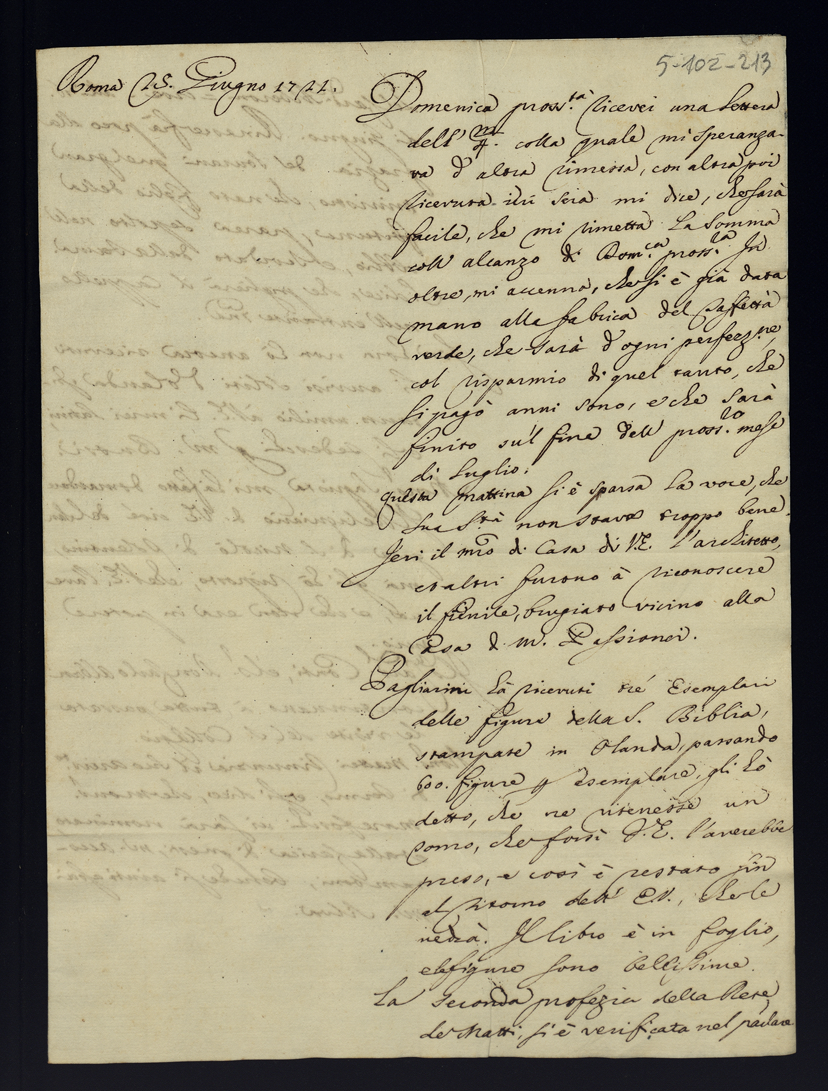 5-102-213
Roma 25. Giugno 1721.
Domenica pross.ta ricevei una lettera
dell' colla quale mi speranza-
va d' altra rimessa, con altra poi
ricevuta mi dice, che sarà
facile, che mi rimetta la somma
coll' alcanzo di Dom.ca pross.ta In
oltre, mi accenna, che si è già data
mano alla fabrica del Taffettà
verde, che sarà d' ogni perfezz.ne,
col risparmio di quel tanto, che
si pagò anni sono, e che sarà
finito sul fine dell pross.mo mese
di Luglio.
questa mattina si è sparsa la voce, che
Sua S.tà non stava troppo bene.
Jeri il mro di Casa di V.E. l'architetto,
et altri furono à riconoscere
il fienile, brugiato vicino alla
Casa d. M. Passionei.
Pagliarini hà ricevuti tré Esemplari
delle figure della S. Biblia,
stampate in Olanda, passando
600. figure esemplare, gli hò
detto, che ne ritenesse un
corpo, che forsi V.E. l'averebbe
preso, e così è restato sin
al ritorno dell' E.V., che le
vedrà. Il libro è in foglio,
e le figure sono bellissime.
La seconda profezia della Rete
de Matti, si è verificata nel parlare